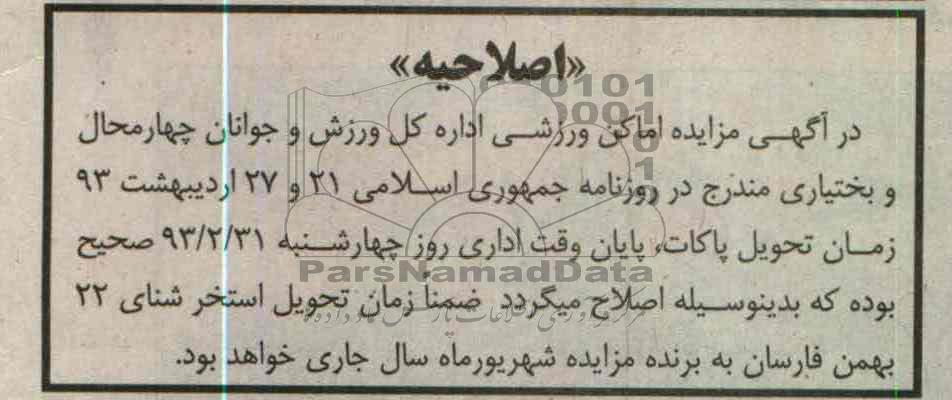 «اصلاحیه»
در آگهـی مزایده اماکن ورزشـی اداره کل ورزش و جوانان چهارمحال
و بختیاری مندرج در روزنامه جمهوری اسـلامی ۲۱ و ۲۷ اردیبهشت ۹۳
زمـان تحویل پاکات، پایان وقت اداری روز چهارشـنبه ۹۳/۲/۳۱ صحیح
بوده که بدینوسـیله اصلاح میگردد. ضمناً زمان تحویل استخر شنای ۲۲
بهمن فارسان به برنده مزایده شهریورماه سال جاری خواهد بود.
ParsNamadData